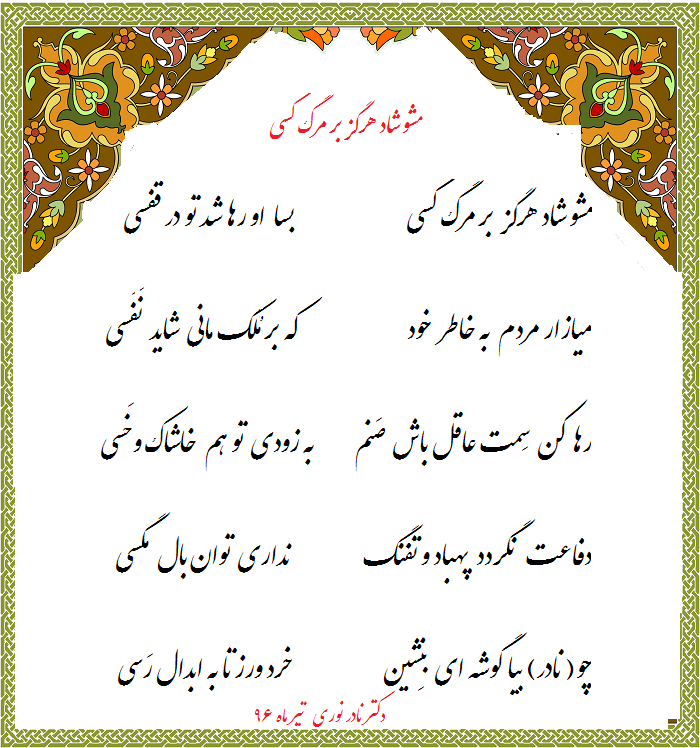 مشو شاد هرگز بر مرگ کسی
مشو شاد هرگز بر مرگ کسی بسا او رها شد تو در قفسی
میازار مردم به خاطر خود که بر مُلک مانی شاید نَفَسی
رها کن سِمت عاقل باش صَنم به زودی تو هم خاشاک و خَسی
دفاعت نگردد پهباد و تفنگ نداری توان بال مگسی
چو (نادر) بیا گوشه ای بِنِشین خرد ورز تا به ابدال رَسی
دکتر نادر نوری تیر ماه ۹۶